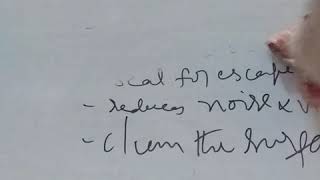 for escape
- reduces noise &
- clean the surfa